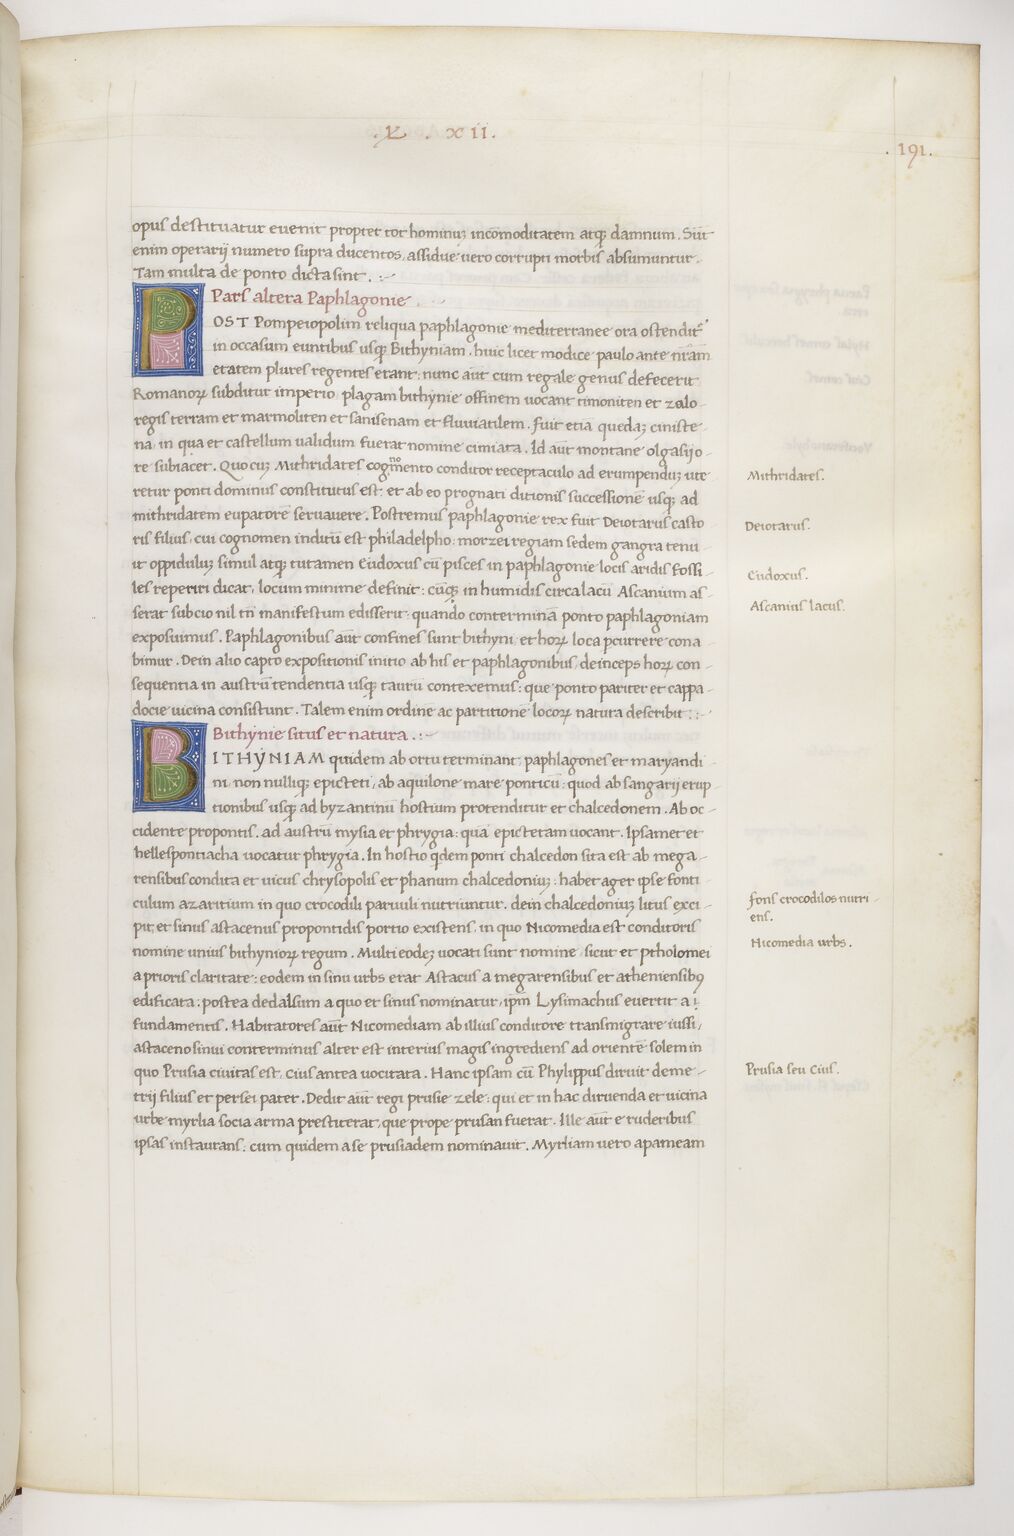 .L. . XII.
. 191.
opus destituatur euenit propter tot hominuʒ incōmoditatem atqʒ damnum. Sūt
enim operarij numero supra ducentos, assidue uero corrupti morbis absumuntur.
Tam multa de ponto dicta sint. .:~
Pars altera Paphlagonie.
POST Pompeiopolim reliqua paphlagonie mediterranee ora ostendit͛
in occasum euntibus usqʒ Bithyniam. huic licet modice paulo ante nr̄am
etatem plures regentes erant: nunc aūt cum regale genus defecerit
Romanoꝝ subditur imperio. plagam bithynie offinem uocant timoniten et zalo-
regis terram et marmoliten et sanisenam et fluuiatilem. Fuit etiā quedaʒ ciniste-
na, in qua et castellum ualidum fuerat nomine cimiata. Id aūt montane olgasij o-
re subiacet. Quo cuʒ Mithridates cognomento conditor receptaculo ad erumpenduʒ ute
retur ponti dominus constitutus est: et ab eo prognati ditionis successionē usqʒ ad
mithridatem eupatorē seruauere. Postremus paphlagonie rex fuit Deiotarus casto
ris filius, cui cognomen inditū est philadelpho: morzei regiam sedem gangra tenu
it oppiduluʒ simul atqʒ tutamen Eudoxus cū pisces in paphlagonie locis aridis fossi-
les reperiri dicat, locum minime definit: cūqʒ in humidis circa lacū Ascanium as-
serat sub cio nil tn̄ manifestum edisserit: quando conterminā ponto paphlagoniam
exposuimus. Paphlagonibus aūt confines sunt bithyni, et hoꝝ loca ꝑcurrere cona
bimur. Dein alio capto expositionis initio ab his et paphlagonibus, deinceps hoꝝ con-
sequentia in austrū tendentia usqʒ taurū contexemus: que ponto pariter et cappa-
docie uicina consistunt. Talem enim ordinē ac partitionē locoꝝ natura describit .:~
Bithynie situs et natura .:~
BITHYNIAM quidem ab ortu terminant, paphlagones et maryandi
ni non nulliqʒ epicteti, ab aquilone mare ponticū: quod ab sangarij erup
tionibus usqʒ ad byzantinū hostium protenditur et chalcedonem. Ab oc-
cidente propontis. ad austrū mysia et phrygia: quā epictetam uocant. Ipsamet et
hellespontiacha uocatur phrygia. In hostio q̇dem ponti chalcedon sita est ab mega-
rensibus condita et uicus chrysopolis et phanum chalcedoniuʒ: habet ager ipse fonti-
culum azaritium in quo crocodili paruuli nutriuntur. dein chalcedoniuʒ litus exci-
pit, et sinus astacenus propontidis portio existens, in quo Nicomedia est conditoris
nomine unius bithynioꝝ regum. Multi eodeʒ uocati sunt nomine, sicut et ptholomei
a prioris claritate: eodem in sinu urbs erat Astacus a megarensibus et atheniensibꝰ
edificata: postea dedalsum a quo et sinus nominatur, ip̄m Lysimachus euertit a
fundamentis. Habitatores aūt Nicomediam ab illius conditore transmigrare iussi,
astaceno sinui conterminus alter est interius magis ingrediens ad orientē solem in
quo Prusia ciuitas est, cius antea uocitata. Hanc ipsam cū Phylippus diruit deme-
trij filius et persei pater. Dedit aūt regi prusie zele: qui et in hac diruenda et uicina
urbe myrlia socia arma prestiterat, que prope prusan fuerat. Ille aūt e ruderibus
ipsas instaurans: cum quidem a se prusiadem nominauit. Myrliam uero apameam
Mithridates.
Deiotarus.
Eudoxus.
Ascanius lacus.
fons crocodilos nutri-
ens.
Nicomedia urbs.
Prusia seu Cius.